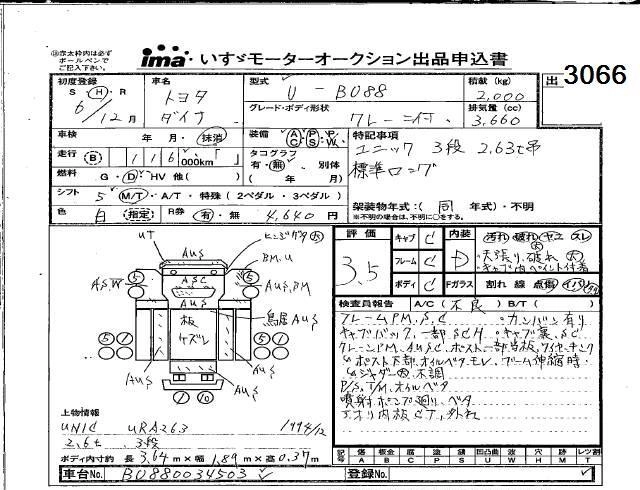 ※赤太枠内は必ず
ボールペンで
ご記入下さい。
ima いすゞモーターオークション出品申込書
出 3066
初度登録
S・H・R
6/12月
車名
トヨタ
ダイナ
型式
U-BU88
グレード・ボディ形状
クレーン付
積載(kg)
2,000
排気量(cc)
3,660
車検 年・月・抹消
装備 AC PS PW
走行 B 116,000km
タコグラフ
有・無・別体
( 年 月)
燃料 G・D・HV 他( )
シフト 5 M/T・A/T・特殊(2ペダル・3ペダル)
色 白 指定 R券 有・無 4,640円
特記事項
ユニック 3段 2.63t吊
標準ロング
架装物年式:( 同 年式)・不明
※不明の場合は、不明に○をする。
UT
AuS
ヒンジガタ大
BM,U
AS,W
5
ASC
5
AuS,BM
AuS
板
ケズレ
鳥居AuS
5 1
5 1
AuS
AuS
AuS
1 10
評価
3.5
キャブ C
フレーム C
ボディ C
内装 D
汚れ・破れ・ヤニ・スレ
大
・天張り破れ大
・キャブ内ペイント付着
Fガラス 割れ 線 点傷
検査員報告 A/C(不良) B/T( )
フレームPM,S,C ・カンバン有り
キャブバック,一部SCH ・キャブ裏,SC
クレーンPM,AuSC,ポスト一部当板,ワイヤーキンク
ポスト下部,オイルベタモレ、ブーム伸縮時
ジャダー大不調
P/S,T/M,オイルベタ
噴射ポンプ廻り,ベタ
アオリ内板CT,外れ
上物情報
UNIC URA263 1994/12
2.6t 3段
ボディ内寸約 長 3.64m×幅 1.89m×高 0.37m
記号 傷A 板金B 腐C 塗P 錆S 凹凸曲U 波W 穴H 跡M レンズ割T
車台No. BU880034503
登録No.